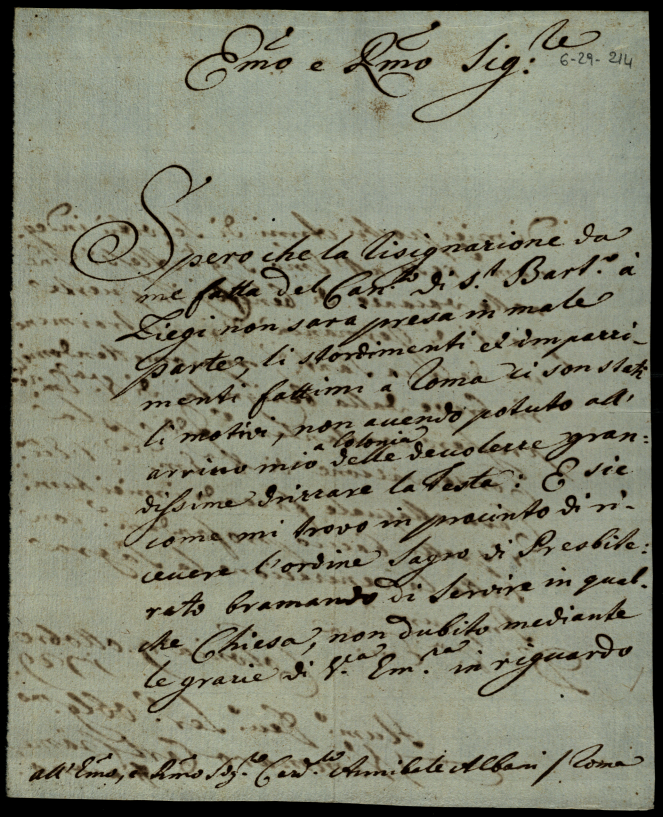 Emo e Rmo Sig:re
6-29-214
Spero che la risignazione da
me fatta del Canto di S.t Bart.o à
Liegi non sara presa in male
parte, li stordimenti ed imparri-
menti fattimi à Roma ci son stati
li motivi, non avendo potuto all'
arrivo mio a Colonia delle devolezze gran-
dissime drizzare la Testa: E sic
come mi trovo in procinto di ri-
cevere l'ordine Sagro di Presbite:
rato bramando di Servire in qual-
che Chiesa, non dubito mediante
le grazie di V.a Em.za in riguardo
all'Emo, e Rmo Sig.re Card.le Annibale Albani / Roma